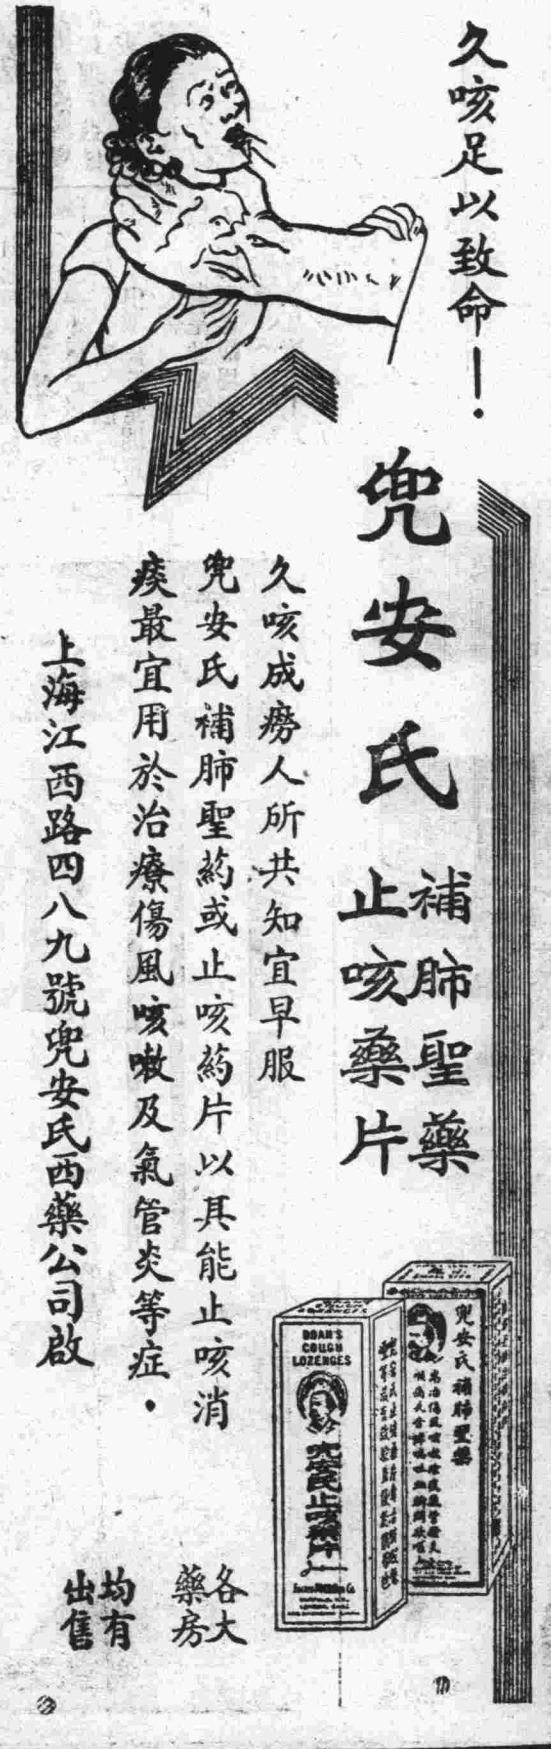 久咳足以致命！
兜安氏
補肺聖藥
止咳藥片
久咳成癆人所共知宜早服
兜安氏補肺聖药或止咳药片以具能止咳消
痰最宜用於治療傷風咳嗽及氣管炎等症．
上海江西路四八九號兜安氏西藥公司啟
兜安氏補肺聖藥
DOAN'S
COUGH
LOZENGES
兜安氏止咳藥片
各大
藥房
均有
出售